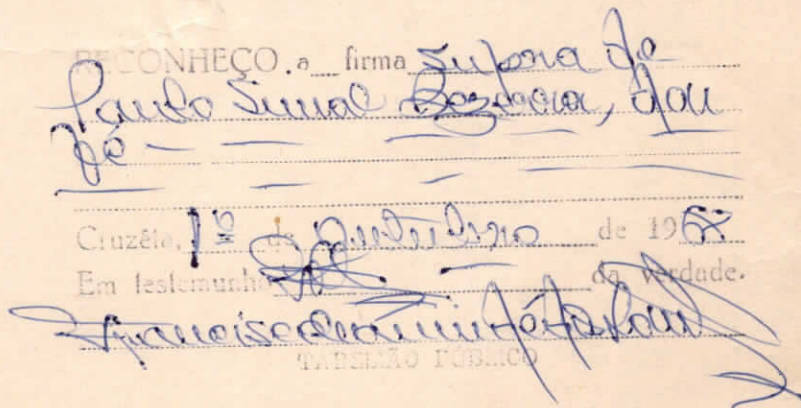 RECONHEÇO a firma supra de
Paulo Bezerra, dou
fé
Cruzêta, 1º de Outubro de 196
Em testemunho da verdade.
TABELIÃO PÚBLICO